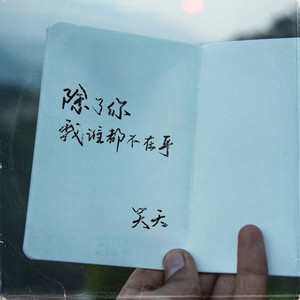 除了你
我谁都不在乎
笑天